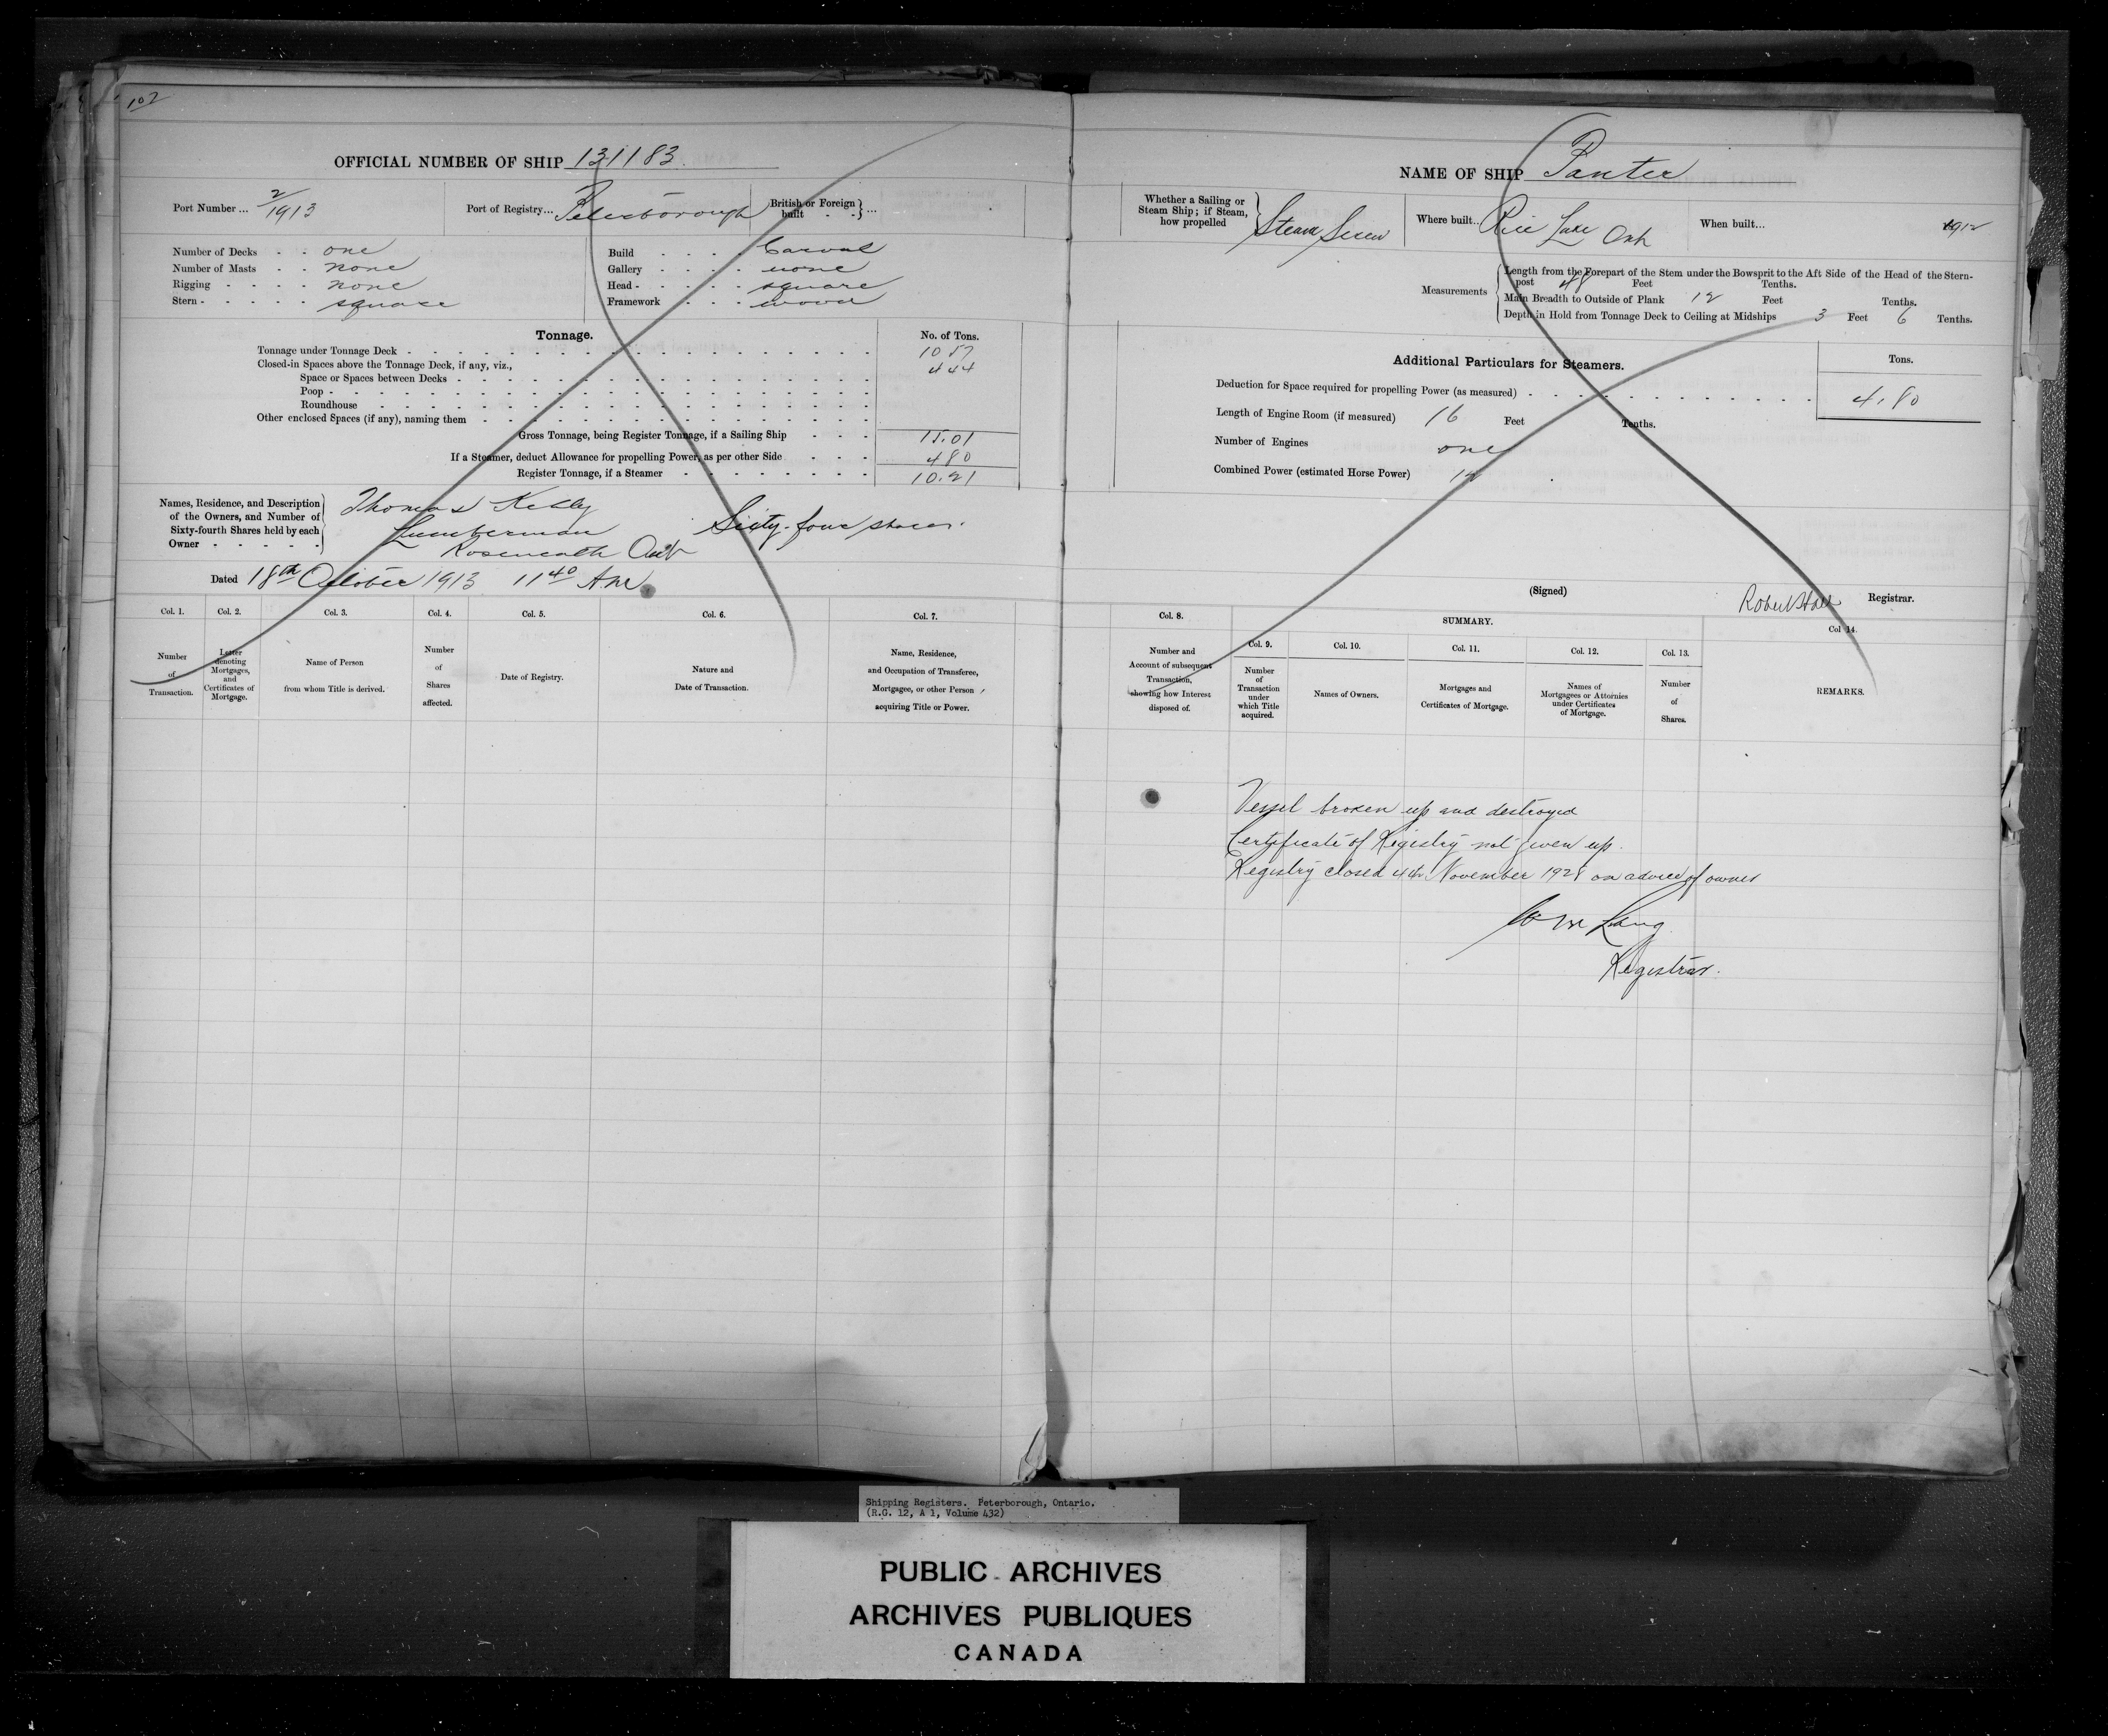 102
OFFICIAL NUMBER OF SHIP 131183.
Port Number ... 2/1913
Port of Registry... Peterborough
British or Foreign built . . } ...
Number of Decks . . one
Number of Masts . . none
Rigging . . . . none
Stern . . . . . square
Build . . . . Carvel
Gallery . . . . none
Head . . . . . square
Framework . . . wood
Tonnage.
No. of Tons.
Tonnage under Tonnage Deck 10 57
Closed-in Spaces above the Tonnage Deck, if any, viz., 4 44
Space or Spaces between Decks
Poop
Roundhouse
Other enclosed Spaces (if any), naming them
Gross Tonnage, being Register Tonnage, if a Sailing Ship . . . 15.01
If a Steamer, deduct Allowance for propelling Power, as per other Side . . . 4 80
Register Tonnage, if a Steamer 10.21
Names, Residence, and Description of the Owners, and Number of Sixty-fourth Shares held by each Owner
Thomas Kelly
Lumberman Sixty-four shares.
Roseneath Ont
Dated 18th October 1913 11 40 AM
Col. 1.
Number of Transaction.
Col. 2.
Letter denoting Mortgages, and Certificates of Mortgage.
Col. 3.
Name of Person from whom Title is derived.
Col. 4.
Number of Shares affected.
Col. 5.
Date of Registry.
Col. 6.
Nature and Date of Transaction.
Col. 7.
Name, Residence, and Occupation of Transferee, Mortgagee, or other Person acquiring Title or Power.
NAME OF SHIP Panter
Whether a Sailing or Steam Ship; if Steam, how propelled } Steam Screw
Where built... Rice Lake Ont
When built... 1912
Measurements
Length from the Forepart of the Stem under the Bowsprit to the Aft Side of the Head of the Stern-
post 48 Feet Tenths.
Main Breadth to Outside of Plank 12 Feet Tenths.
Depth in Hold from Tonnage Deck to Ceiling at Midships 3 Feet 6 Tenths.
Additional Particulars for Steamers.
Tons.
Deduction for Space required for propelling Power (as measured) 4.80
Length of Engine Room (if measured) 16 Feet Tenths.
Number of Engines one
Combined Power (estimated Horse Power) 12
(Signed) Robert Hall Registrar.
Col. 8.
Number and Account of subsequent Transaction, showing how Interest disposed of.
SUMMARY.
Col. 9.
Number of Transaction under which Title acquired.
Col. 10.
Names of Owners.
Col. 11.
Mortgages and Certificates of Mortgage.
Col. 12.
Names of Mortgagees or Attornies under Certificates of Mortgage.
Col. 13.
Number of Shares.
Col 14.
REMARKS.
Vessel broken up and destroyed
Certificate of Registry not given up.
Registry closed 4th November 1928 on advice of owner
Wm Lang
Registrar.
Shipping Registers. Peterborough, Ontario.
(R.G. 12, A 1, Volume 432)
PUBLIC ARCHIVES
ARCHIVES PUBLIQUES
CANADA